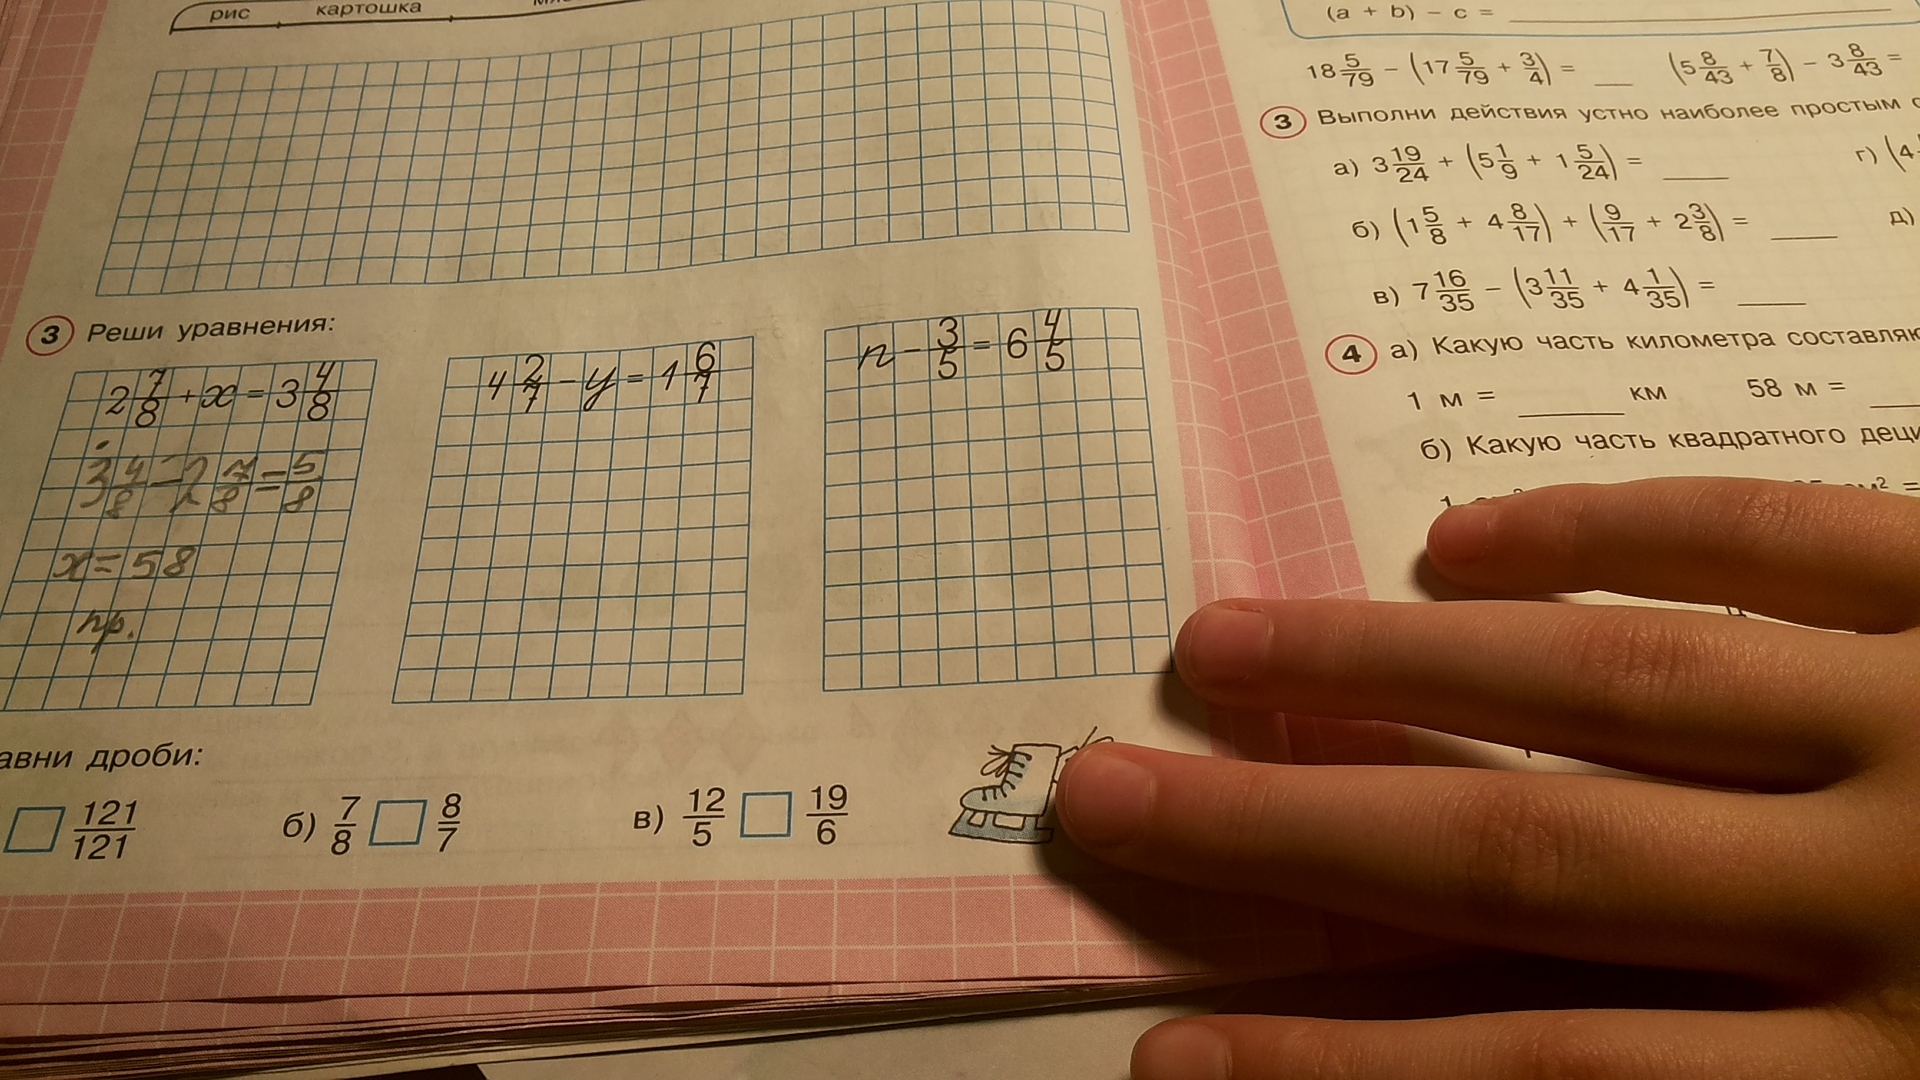 рис картошка
3 Реши уравнения:
2 7/8 + x = 3 4/8
3 4/8 - 2 7/8 = 5/8
x = 58
пр.
4 2/7 - y = 1 6/7
n - 3/5 = 6 4/5
авни дроби:
121/121
б) 7/8 8/7
в) 12/5 19/6
(a + b) - c =
18 5/79 - (17 5/79 + 3/4) = (5 8/43 + 7/8) - 3 8/43 =
3 Выполни действия устно наиболее простым
а) 3 19/24 + (5 1/9 + 1 5/24) = г) (4
б) (1 5/8 + 4 8/17) + (9/17 + 2 3/8) = д)
в) 7 16/35 - (3 11/35 + 4 1/35) =
4 а) Какую часть километра составляю
1 м = км 58 м =
б) Какую часть квадратного деци